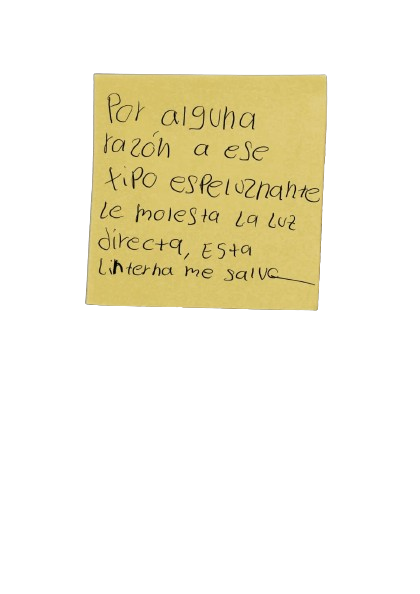 Por alguna
razón a ese
tipo espeluznante
Le molesta La Luz
directa, Esta
Linterna me salva